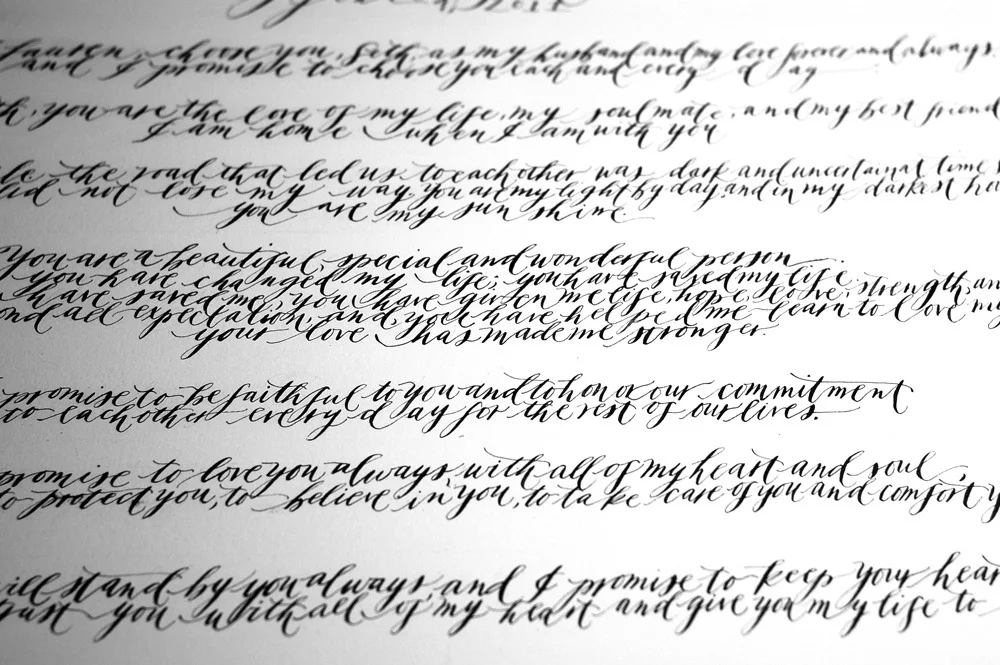 Lauren, choose you, Seth, as my husband and my love forever and always.
and I promise to choose you each and every day
you are the love of my life, my soulmate, and my best friend
I am home when I am with you
the road that led us to each other was dark and uncertain at times
did not lose my way, you are my light by day, and in my darkest
you are my sun shine.
You are a beautiful, special and wonderful person
you have changed my life; you have saved my life
have saved me, you have given me life, hope, love, strength,
and all expectation, and you have helped me learn to love
your love has made me stronger.
promise to be faithful to you and to honor our commitment
to each other every day for the rest of our lives.
promise to love you always, with all of my heart and soul,
to protect you, to believe in you, to take care of you and comfort
will stand by you always, and I promise to keep your heart
trust you with all of my heart and give you my life to